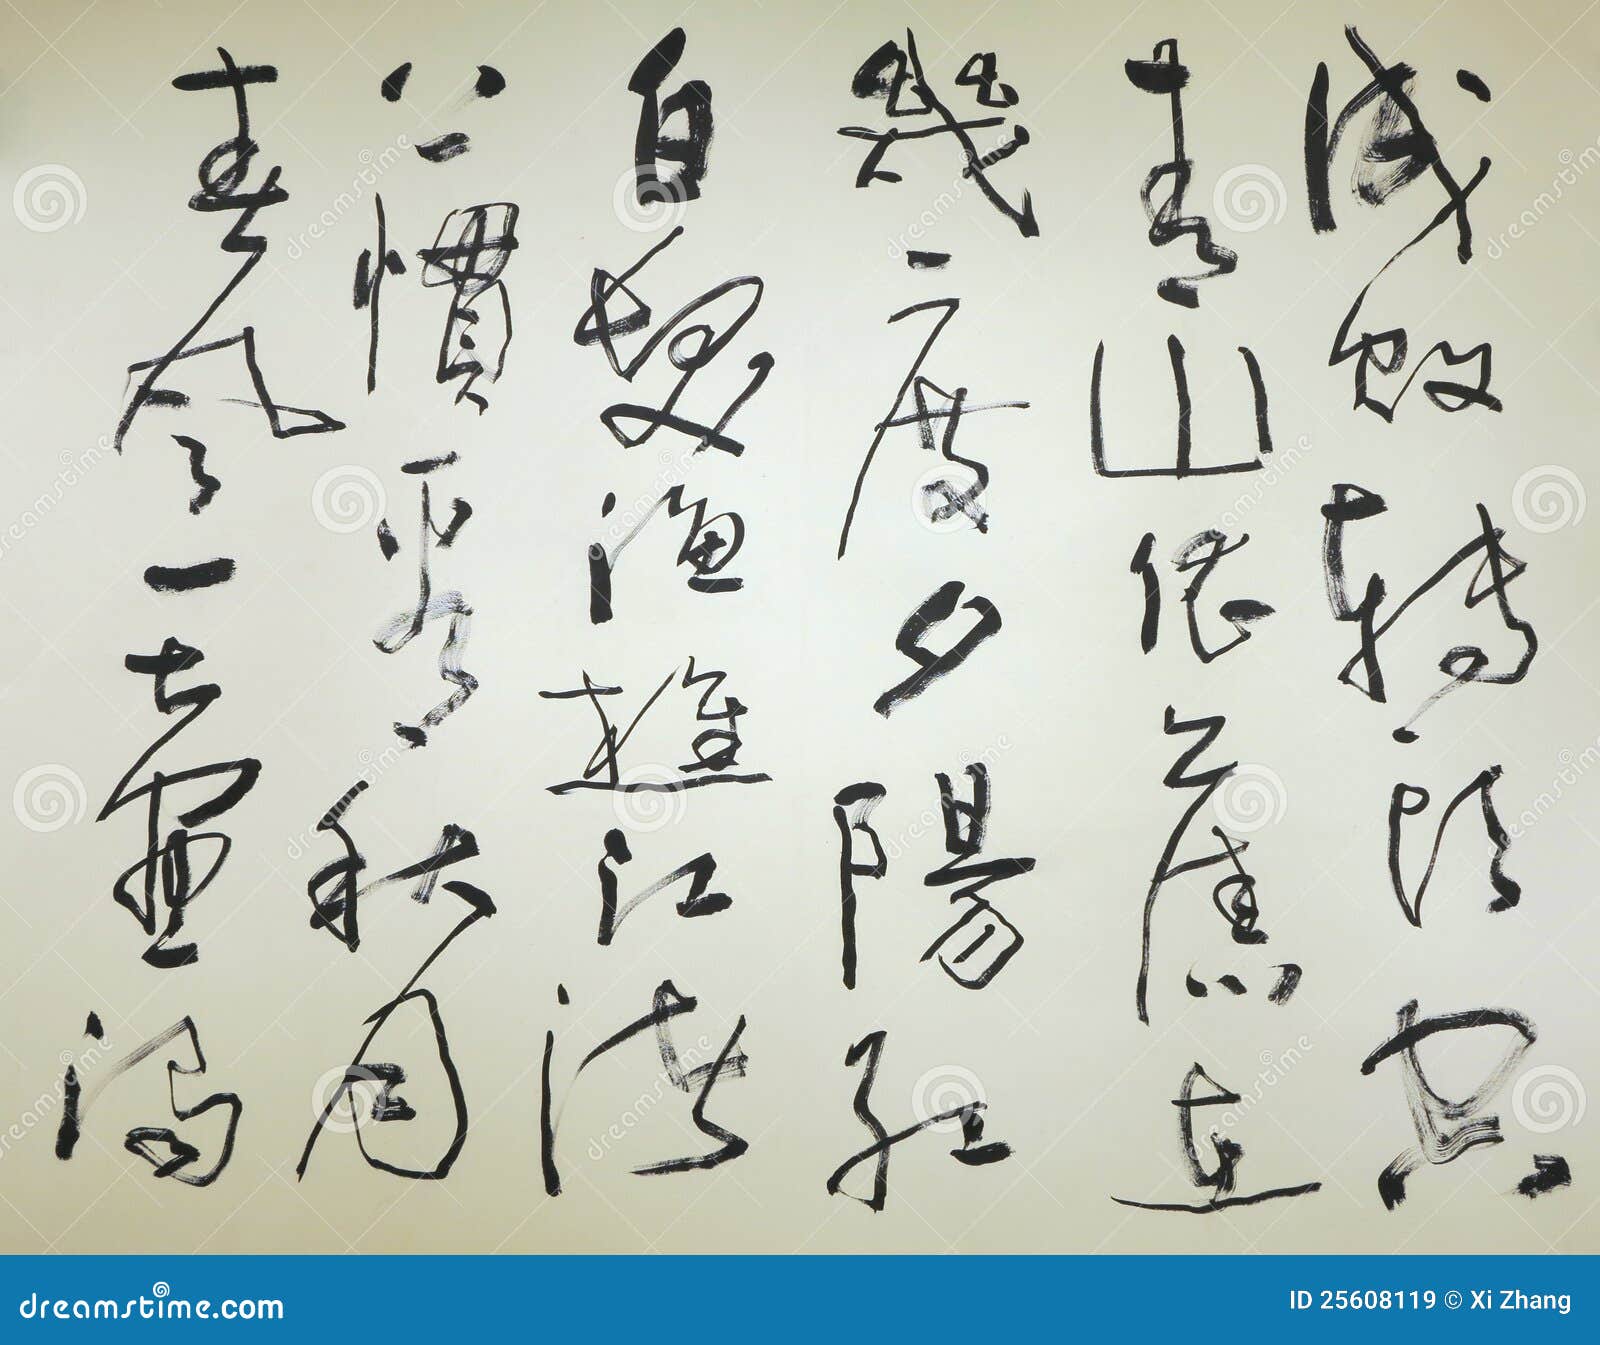 成敗轉頭空
青山依舊在
幾度夕陽紅
白髮漁樵江渚
上慣看秋月
春風一壺濁
dreamstime.com
ID 25608119 © Xi Zhang